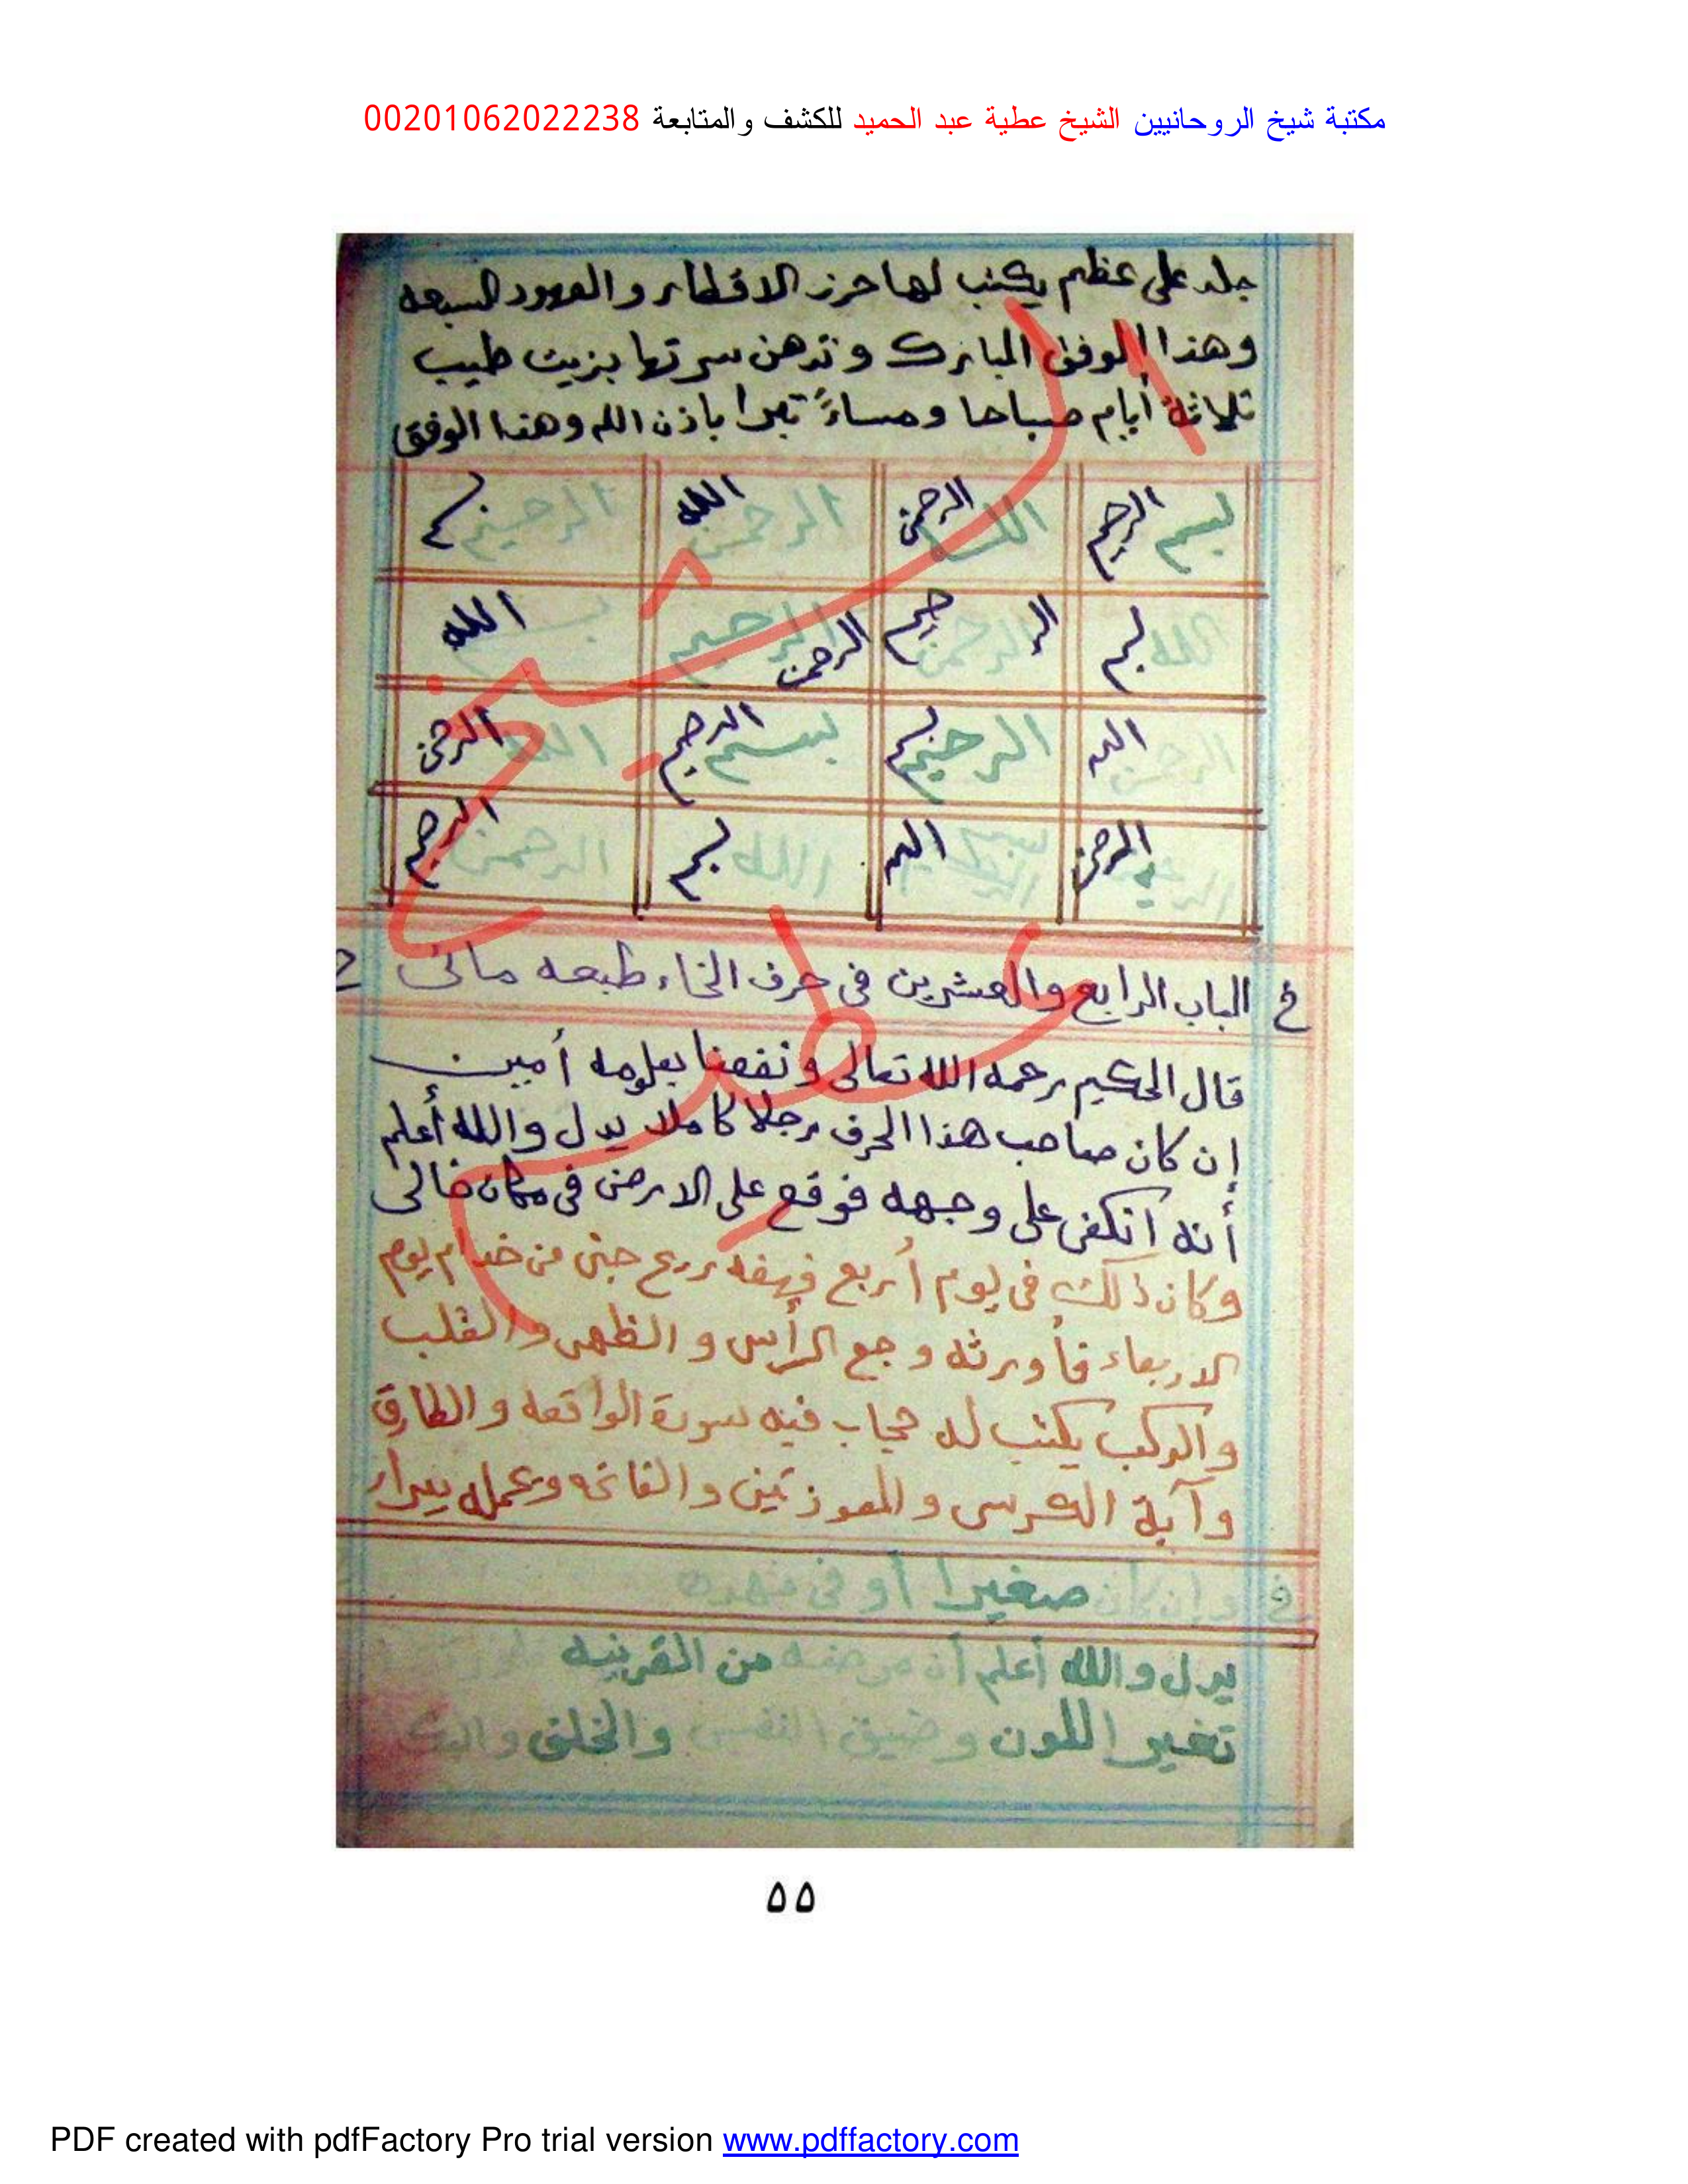 مكتبة شيخ الروحانيين الشيخ عطية عبد الحميد للكشف والمتابعة 00201062022238
جلد على عظم يكتب لها حرز الاقطار والعهود السبعه
وهذا الوفق المبارك وتدهن سرتها بزيت طيب
ثلاثة أيام صباحا ومساءً تبرا باذن الله وهذا الوفق
بسم الرحيم الله الرحمن الرحمن الله الرحيم بسم
الله بسم الرحمن الرحيم الرحيم الرحمن بسم الله
الرحمن الله الرحيم بسم بسم الرحيم الله الرحمن
الرحيم الرحمن بسم الله الله بسم الرحمن الرحيم
خ الباب الرابع والعشرين في حرف الخاء طبعه مائى خ
قال الحكيم رحمه الله تعالى ونفعنا بعلومه أمين
إن كان صاحب هذا الحرف رجلا كاملا يدل والله أعلم
أنه انكفى على وجهه فوقع على الارض في مكان خالى
وكان ذلك في يوم أربع فهفه ريح جنى من خدام يوم
الاربعاء فأورثه وجع الرأس والظهر والقلب
والركب يكتب له حجاب فيه سورة الواقعه والطارق
وآية الكرسى والمعوذتين والفاتحه وعمله يبرا
وإن كان صغيرا أو في مهده
يدل والله أعلم أن مرضه من القرينه
تغير اللون وضيق النفس والخلق
الشيخ عطيه
٥٥
PDF created with pdfFactory Pro trial version www.pdffactory.com